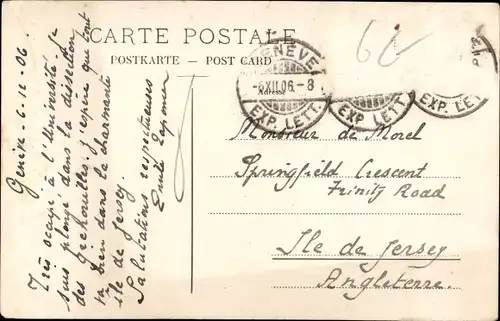 CARTE POSTALE
POSTKARTE — POST CARD
Adresse
GENÈVE
-6.XII.06.-8
EXP. LETT.
EXP. LETT.
EXP. LETT.
6
Genève - 6-12-06.
Très occupé à l'Université. Je
suis plongé dans la dissection
des grenouilles. J'espère que tout
va bien dans la charmante
île de Jersey.
Salutations respectueuses
Emile
Monsieur de Morel
Springfield Crescent
Trinity Road
Ile de Jersey
Angleterre.